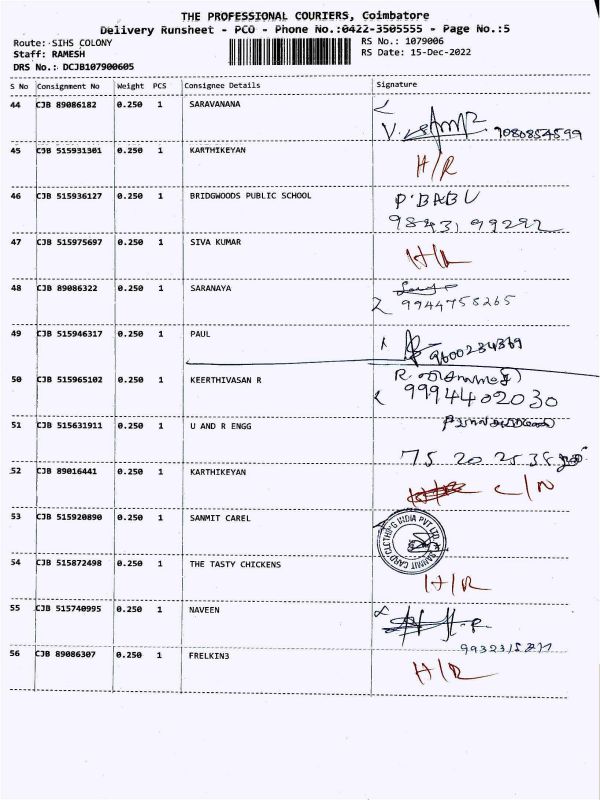 THE PROFESSIONAL COURIERS, Coimbatore
Delivery Runsheet - PCO - Phone No.:0422-3505555 - Page No.:5
Route: SIHS COLONY RS No.: 1079006
Staff: RAMESH RS Date: 15-Dec-2022
DRS No.: DCJB107900605
S No Consignment No Weight PCS Consignee Details Signature
44 CJB 89086182 0.250 1 SARAVANANA
7080854599
45 CJB 515931301 0.250 1 KARTHIKEYAN H/R
46 CJB 515936127 0.250 1 BRIDGWOODS PUBLIC SCHOOL P.BABU
98431 99292
47 CJB 515975697 0.250 1 SIVA KUMAR H/R
48 CJB 89086322 0.250 1 SARANAYA
9944758265
49 CJB 515946317 0.250 1 PAUL
9600234369
50 CJB 515965102 0.250 1 KEERTHIVASAN R
9994402030
51 CJB 515631911 0.250 1 U AND R ENGG
75 20 25 38
52 CJB 89016441 0.250 1 KARTHIKEYAN C/N
53 CJB 515920890 0.250 1 SANMIT CAREL
54 CJB 515872498 0.250 1 THE TASTY CHICKENS H/R
55 CJB 515740995 0.250 1 NAVEEN
56 CJB 89086307 0.250 1 FRELKIN3 H/R